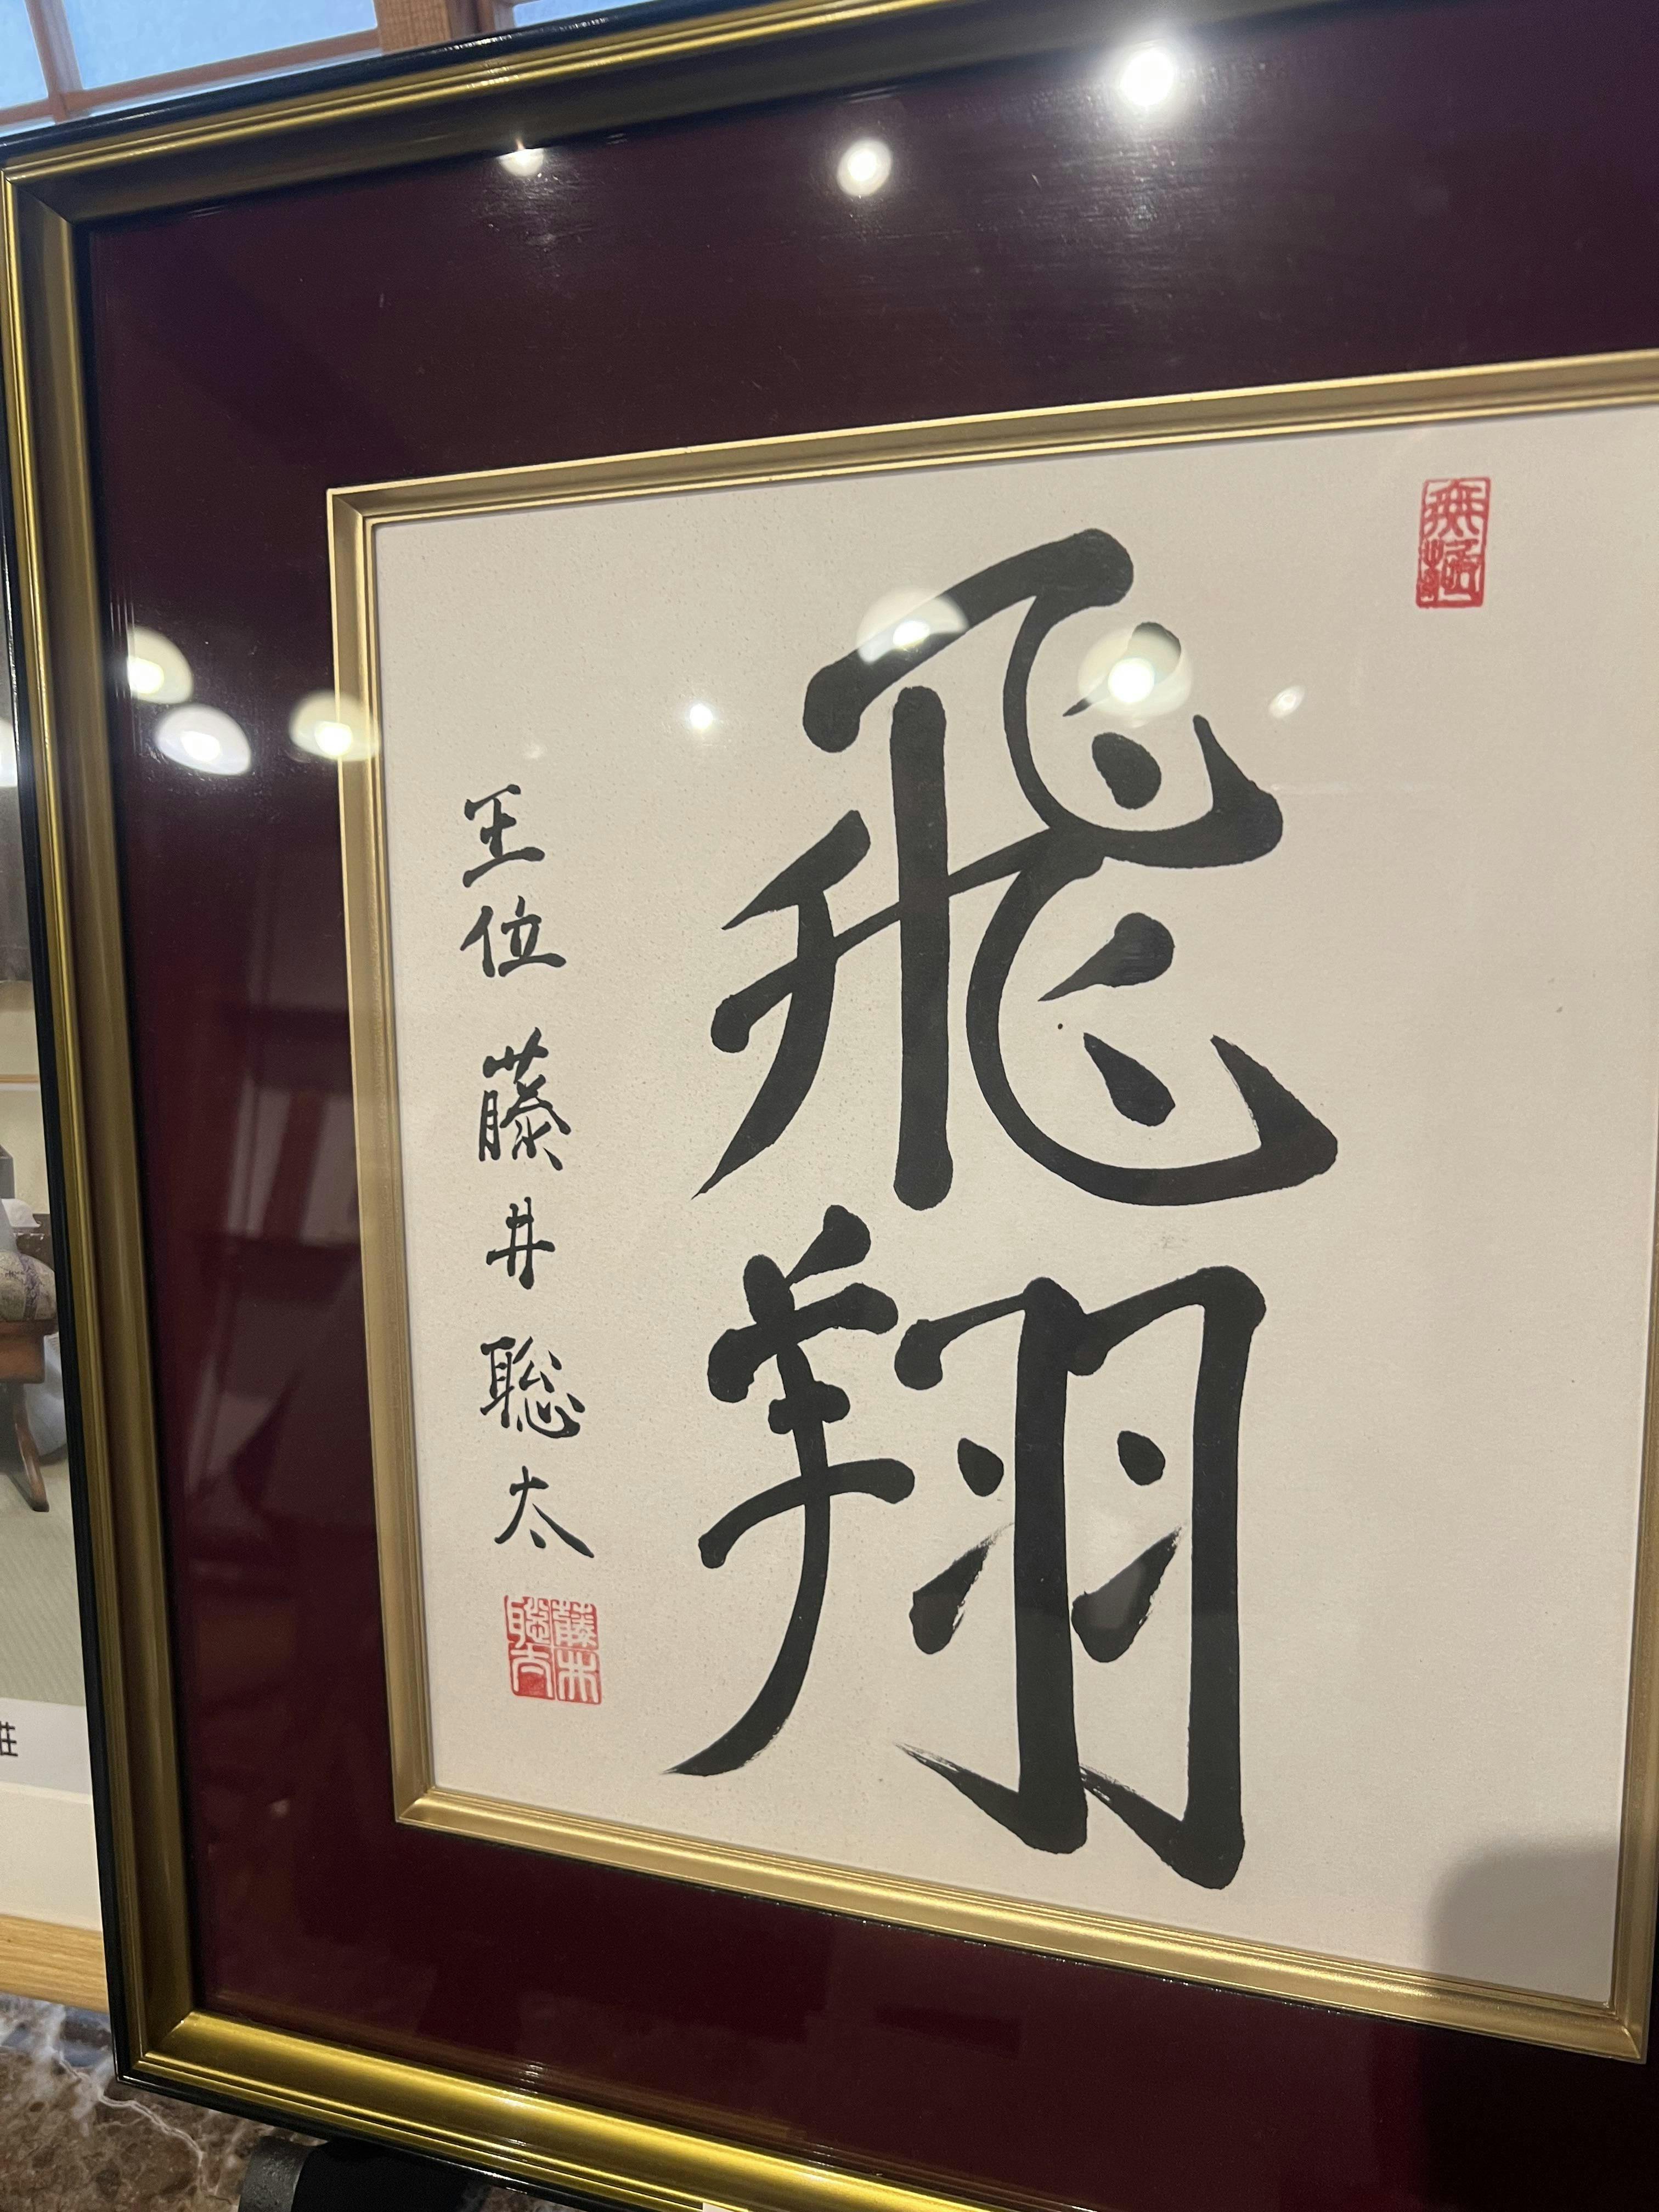 飛翔
王位 藤井聡太
藤井
聡太
荘